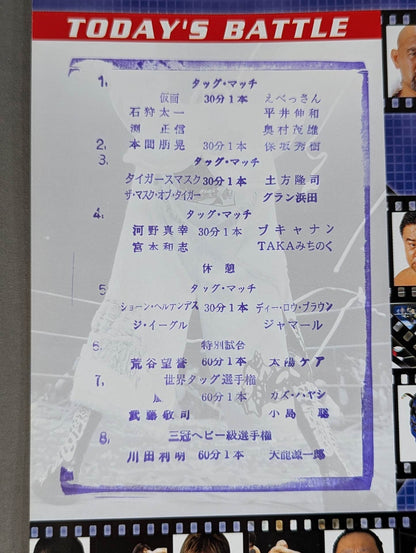 TODAY'S BATTLE
1. タッグ・マッチ
仮面 30分1本 えべっさん
石狩太一 平井伸和
渕 正信 奥村茂雄
2. 本間朋晃 30分1本 保坂秀樹
3. タッグ・マッチ
タイガースマスク 30分1本 土方隆司
ザ・マスク・オブ・タイガー グラン浜田
4. タッグ・マッチ
河野真幸 30分1本 ブキャナン
宮本和志 TAKAみちのく
休憩
5 タッグ・マッチ
ショーン・ヘルナンデス 30分1本 ディー・ロウ・ブラウン
ジ・イーグル ジャマール
6 特別試合
荒谷望誉 60分1本 太陽ケア
7, 世界タッグ選手権
嵐 60分1本 カズ・ハヤシ
武藤敬司 小島 聡
8 三冠ヘビー級選手権
川田利明 60分1本 天龍源一郎